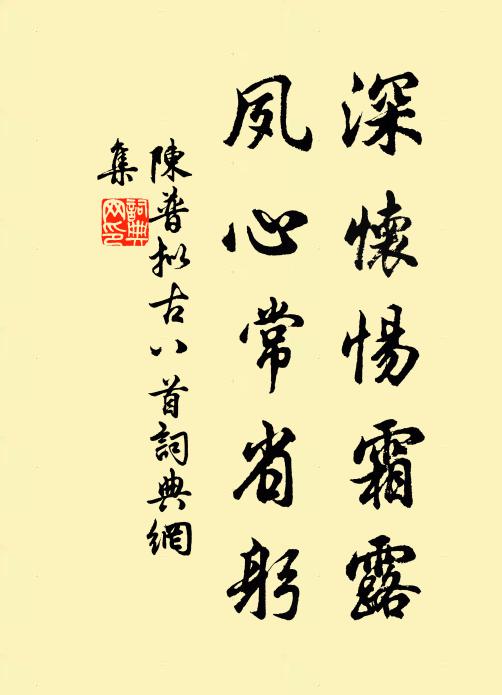 深懷惕霜露
夙心常省躬
陳普拟古八首詞典網
集
詞典网印